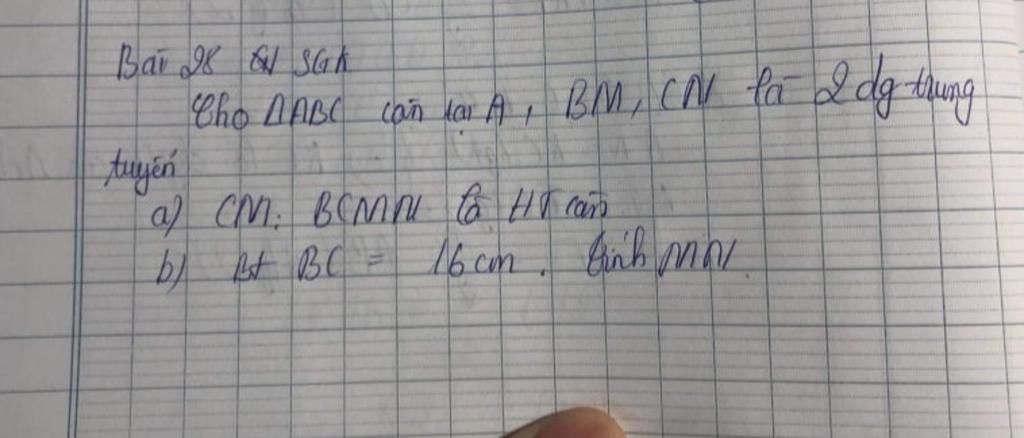 Bài 28 SGK
Cho ΔABC cân tại A, BM, CN là 2 đg trung
tuyến
a) CM: BCMN là HT cân
b) Bt BC = 16cm. Tính MN.